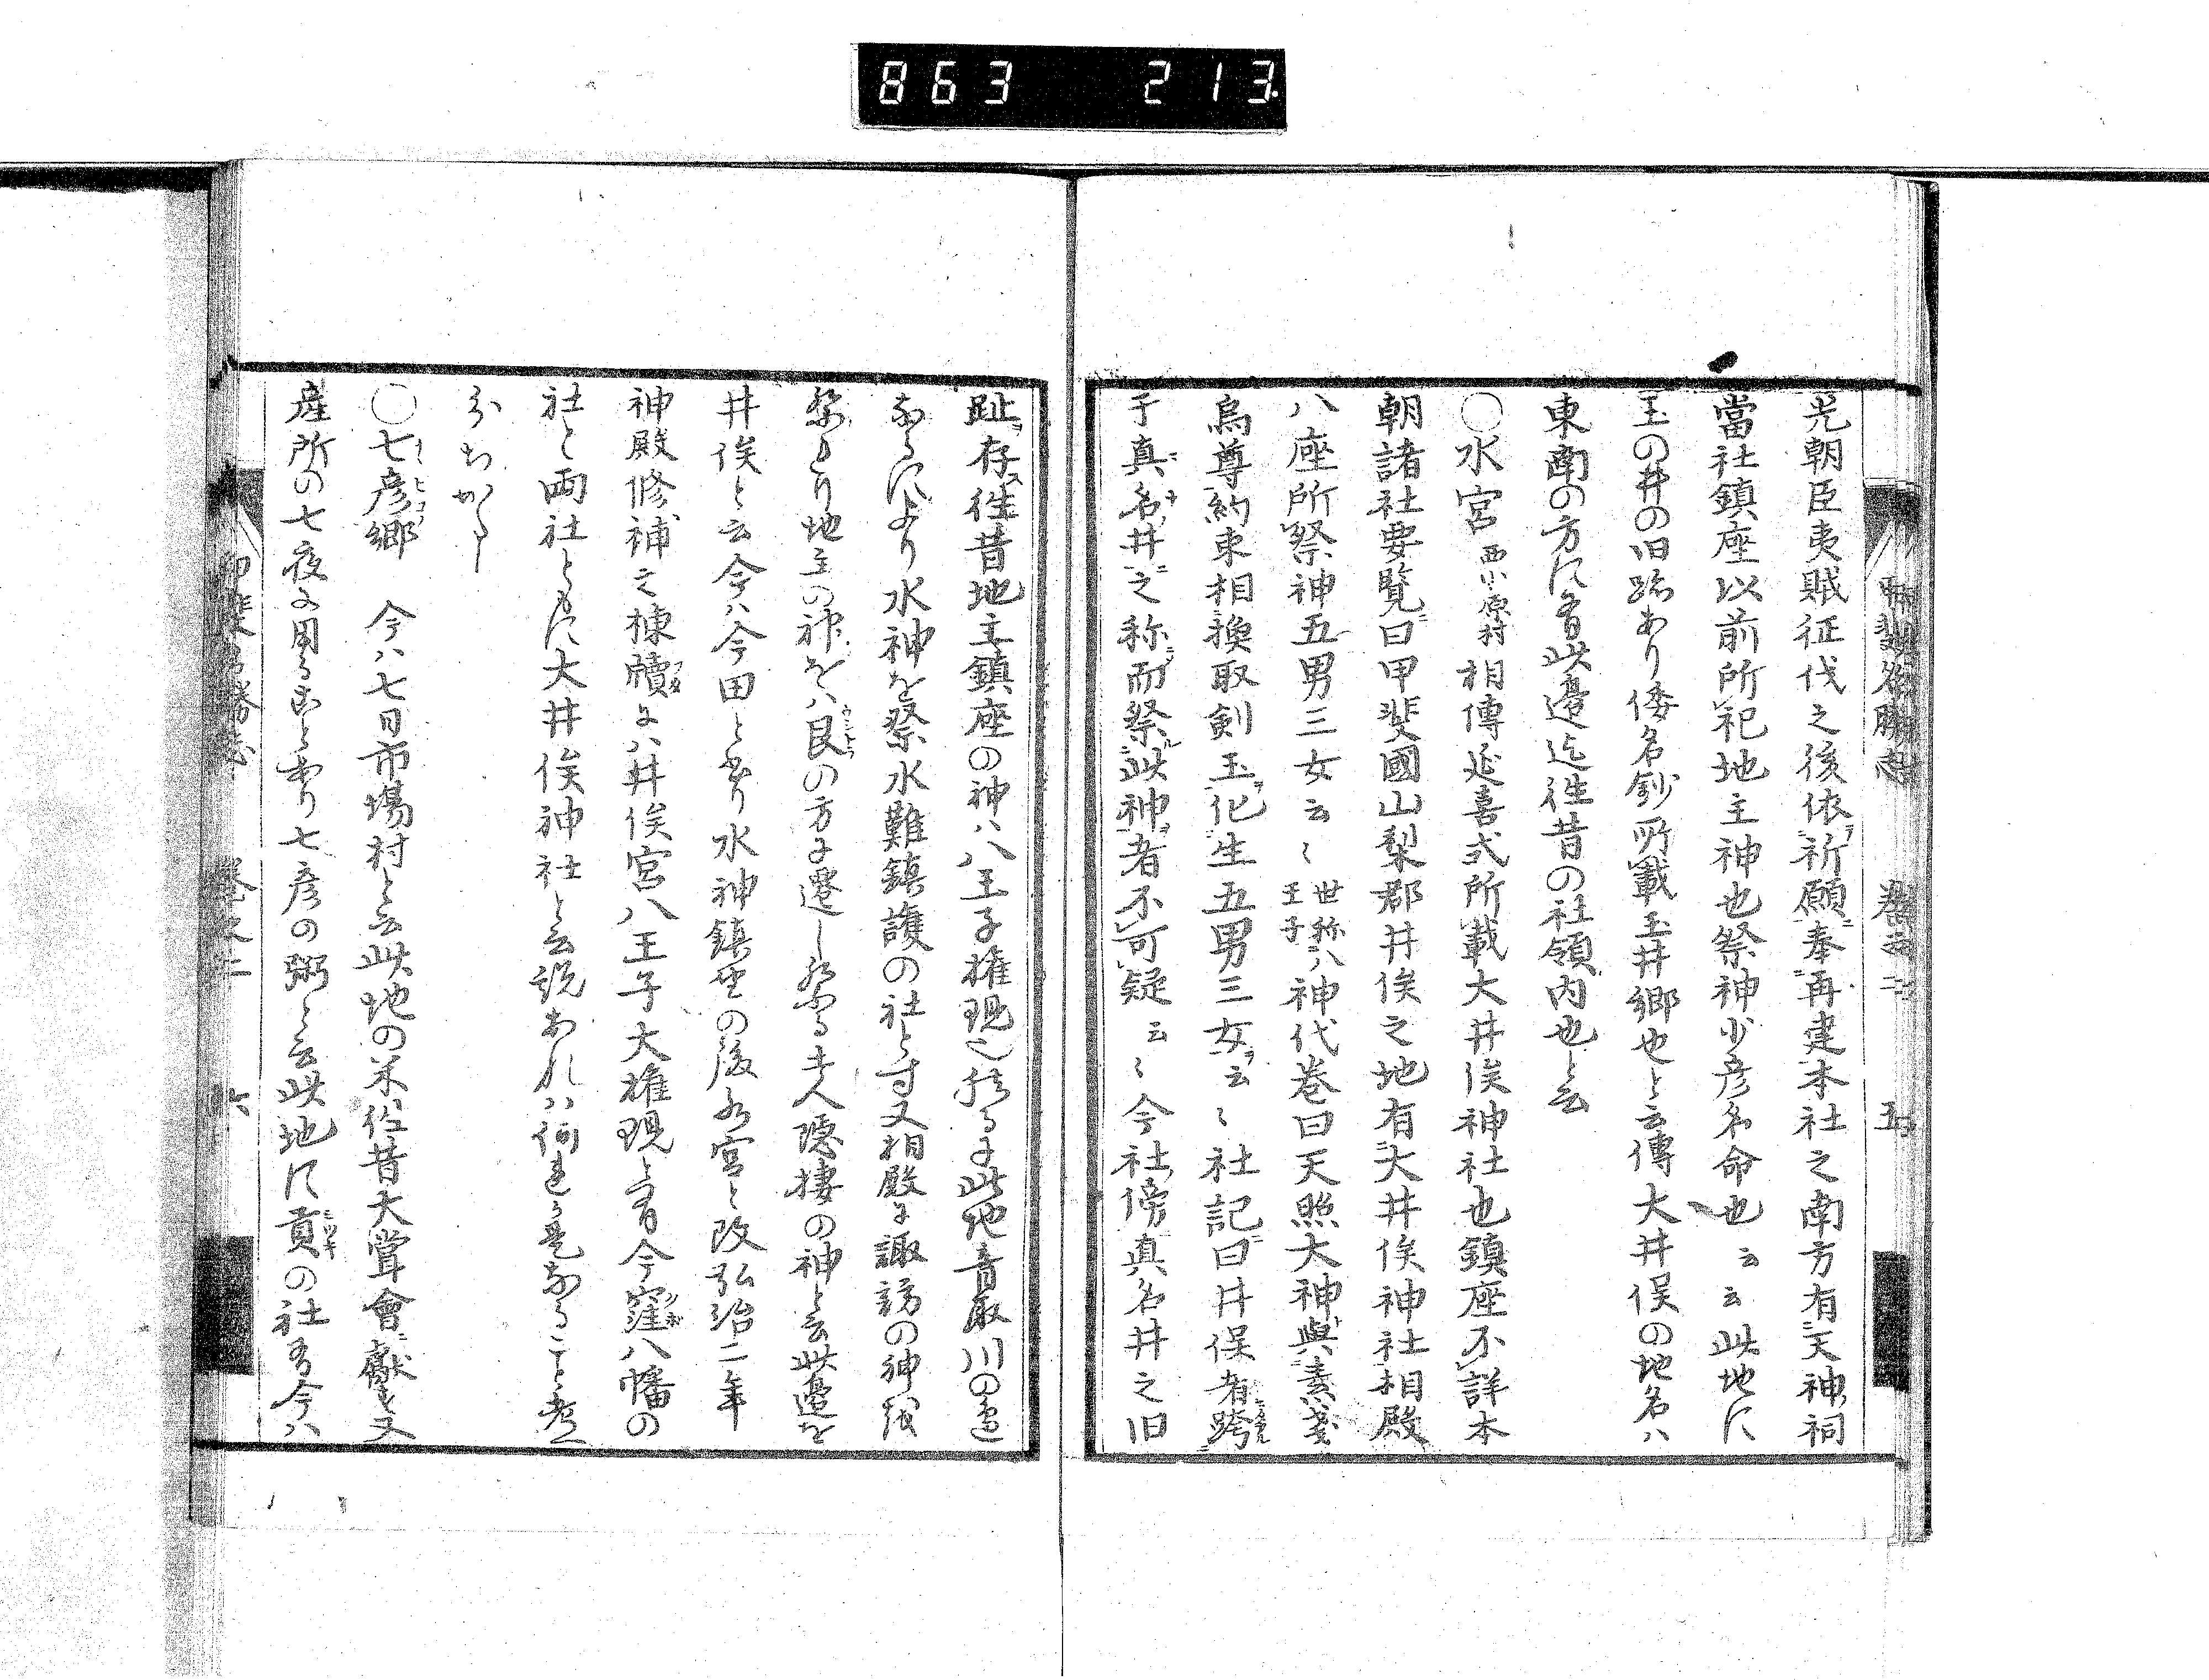 863 213
甲斐名勝志 巻之二 五
光朝臣夷賊征伐之後依祈願奉再建本社之南方有天神祠
當社鎮座以前所祀地主神也祭神少彦名命也云云此地に
玉の井の旧跡あり倭名鈔所載玉井郷也と云傳大井俣の地名ハ
東南の方に有此邊迄往昔の社領内也と云
〇水宮 西小原村 相傳延喜式所載大井俣神社也鎮座不詳本
朝諸社要覧曰甲斐國山梨郡井俣之地有大井俣神社相殿
八座所祭神五男三女云〻 世称八王子 神代巻曰天照大神與素戔
烏尊約束相換取剣玉化生五男三女云〻社記曰井俣者跨
于真名井之称而祭此神者不可疑云〻今社傍真名井之旧
趾存往昔地主鎮座の神ハ八王子権現也然るに此地音取川の邊
なるにより水神を祭水難鎮護の社とす又相殿に諏訪の神を
祭れり地主の神をハ艮の方に遷し祭る土人隠棲の神と云此邊を
井俣と云今ハ今田となり水神鎮坐の後水宮と改弘治二年
神殿修補之棟牘にハ井俣宮八王子大権現と有今窪八幡の
社と両社ともに大井俣神社と云説あれハ何れか是なること考へ
わかちかたし
〇七彦郷 今ハ七日市場村と云此地の米往昔大嘗會献す又
産所の七夜に用ることあり七彦の粥と云此地に貢の社有今ハ
甲斐名勝志 巻之二 六